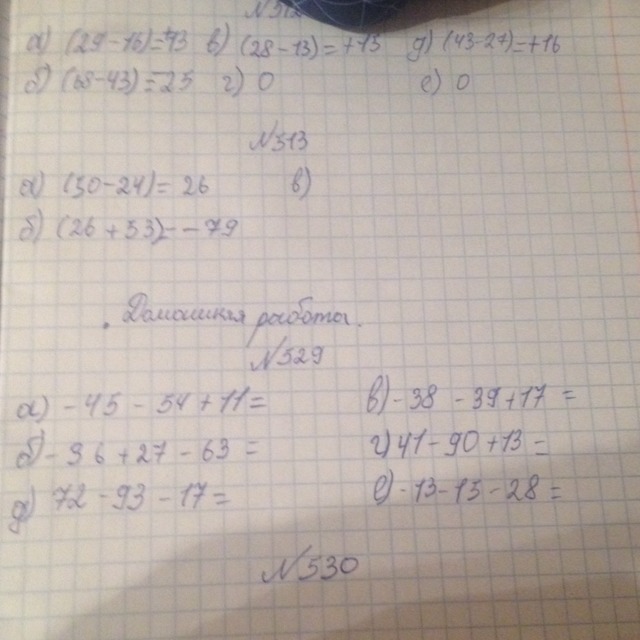 а) (29-16)=+13 в) (28-13)=+15 д) (43-27)=+16
б) (68-43)=-25 г) 0 е) 0
№513
а) (50-24)= 26 в)
б) (26+53)=-79
Домашняя работы.
№529
а) -45-54+11= в) -38-39+17=
б) -36+27-63= г) 41-90+13=
д) 72-93-17= е) -13-15-28=
№530